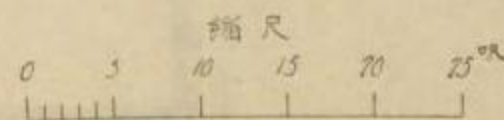 縮尺
0 5 10 15 20 25 呎